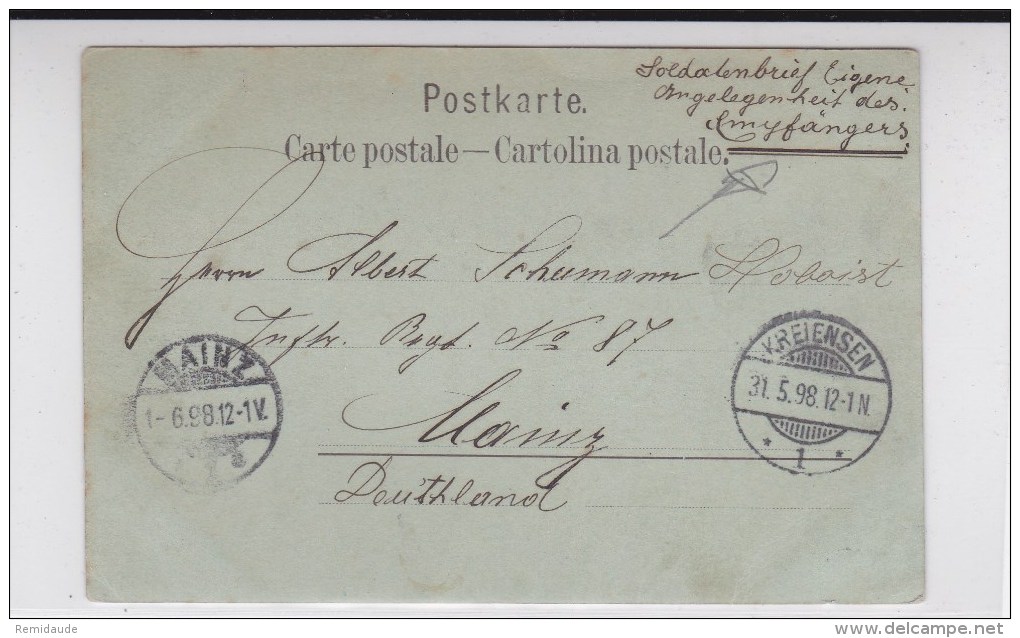 Soldatenbrief Eigene
Angelegenheit des
Empfängers
Postkarte.
Carte postale — Cartolina postale.
Herrn Albert Schumann Hoboist
Inftr. Regt. No 87
Mainz
Deutschland
MAINZ
1-6.98.12-1V.
KREIENSEN
31.5.98.12-1N.
* 1 *
Remidaude
http://www.delcampe.net